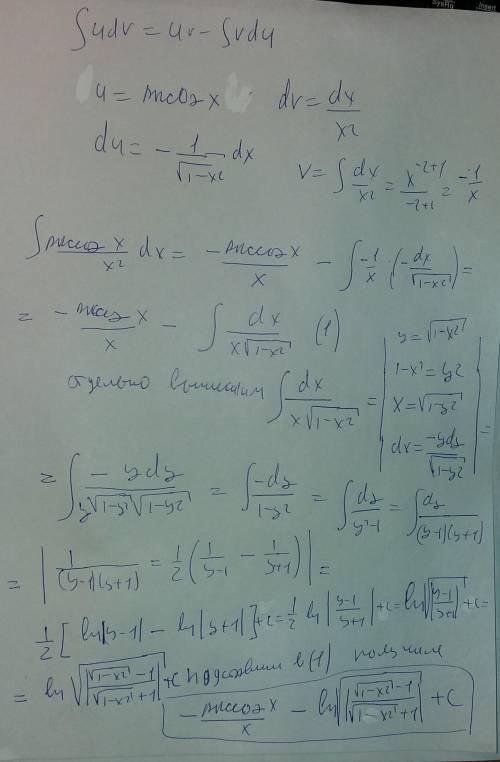 ∫udv = uv - ∫vdu
u = arccos x   dv = dx/x²
du = - 1/√(1-x²) dx   v = ∫ dx/x² = x^(-2+1)/(-2+1) = -1/x
∫ arccos x/x² dx = - arccos x/x - ∫ -1/x · (- dx/√(1-x²)) =
= - arccos x/x - ∫ dx/(x√(1-x²)) (1)
отдельно вычислим ∫ dx/(x√(1-x²)) = | y = √(1-x²)
1-x² = y²
x = √(1-y²)
dx = -ydy/√(1-y²) | =
= ∫ -ydy/(y√(1-y²)√(1-y²)) = ∫ -dy/(1-y²) = ∫ dy/(y²-1) = ∫ dy/((y-1)(y+1))
= | 1/((y-1)(y+1)) = 1/2 (1/(y-1) - 1/(y+1)) | =
1/2 [ ln|y-1| - ln|y+1| ] + c = 1/2 ln |(y-1)/(y+1)| + c = ln √|(y-1)/(y+1)| + c =
= ln √|(√(1-x²) - 1)/(√(1-x²) + 1)| + c подставим в (1) получим
- arccos x/x - ln √|(√(1-x²) - 1)/(√(1-x²) + 1)| + c
SysRq
Insert